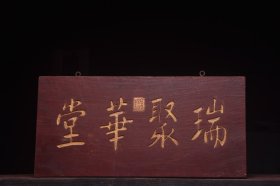 瑞聚華堂